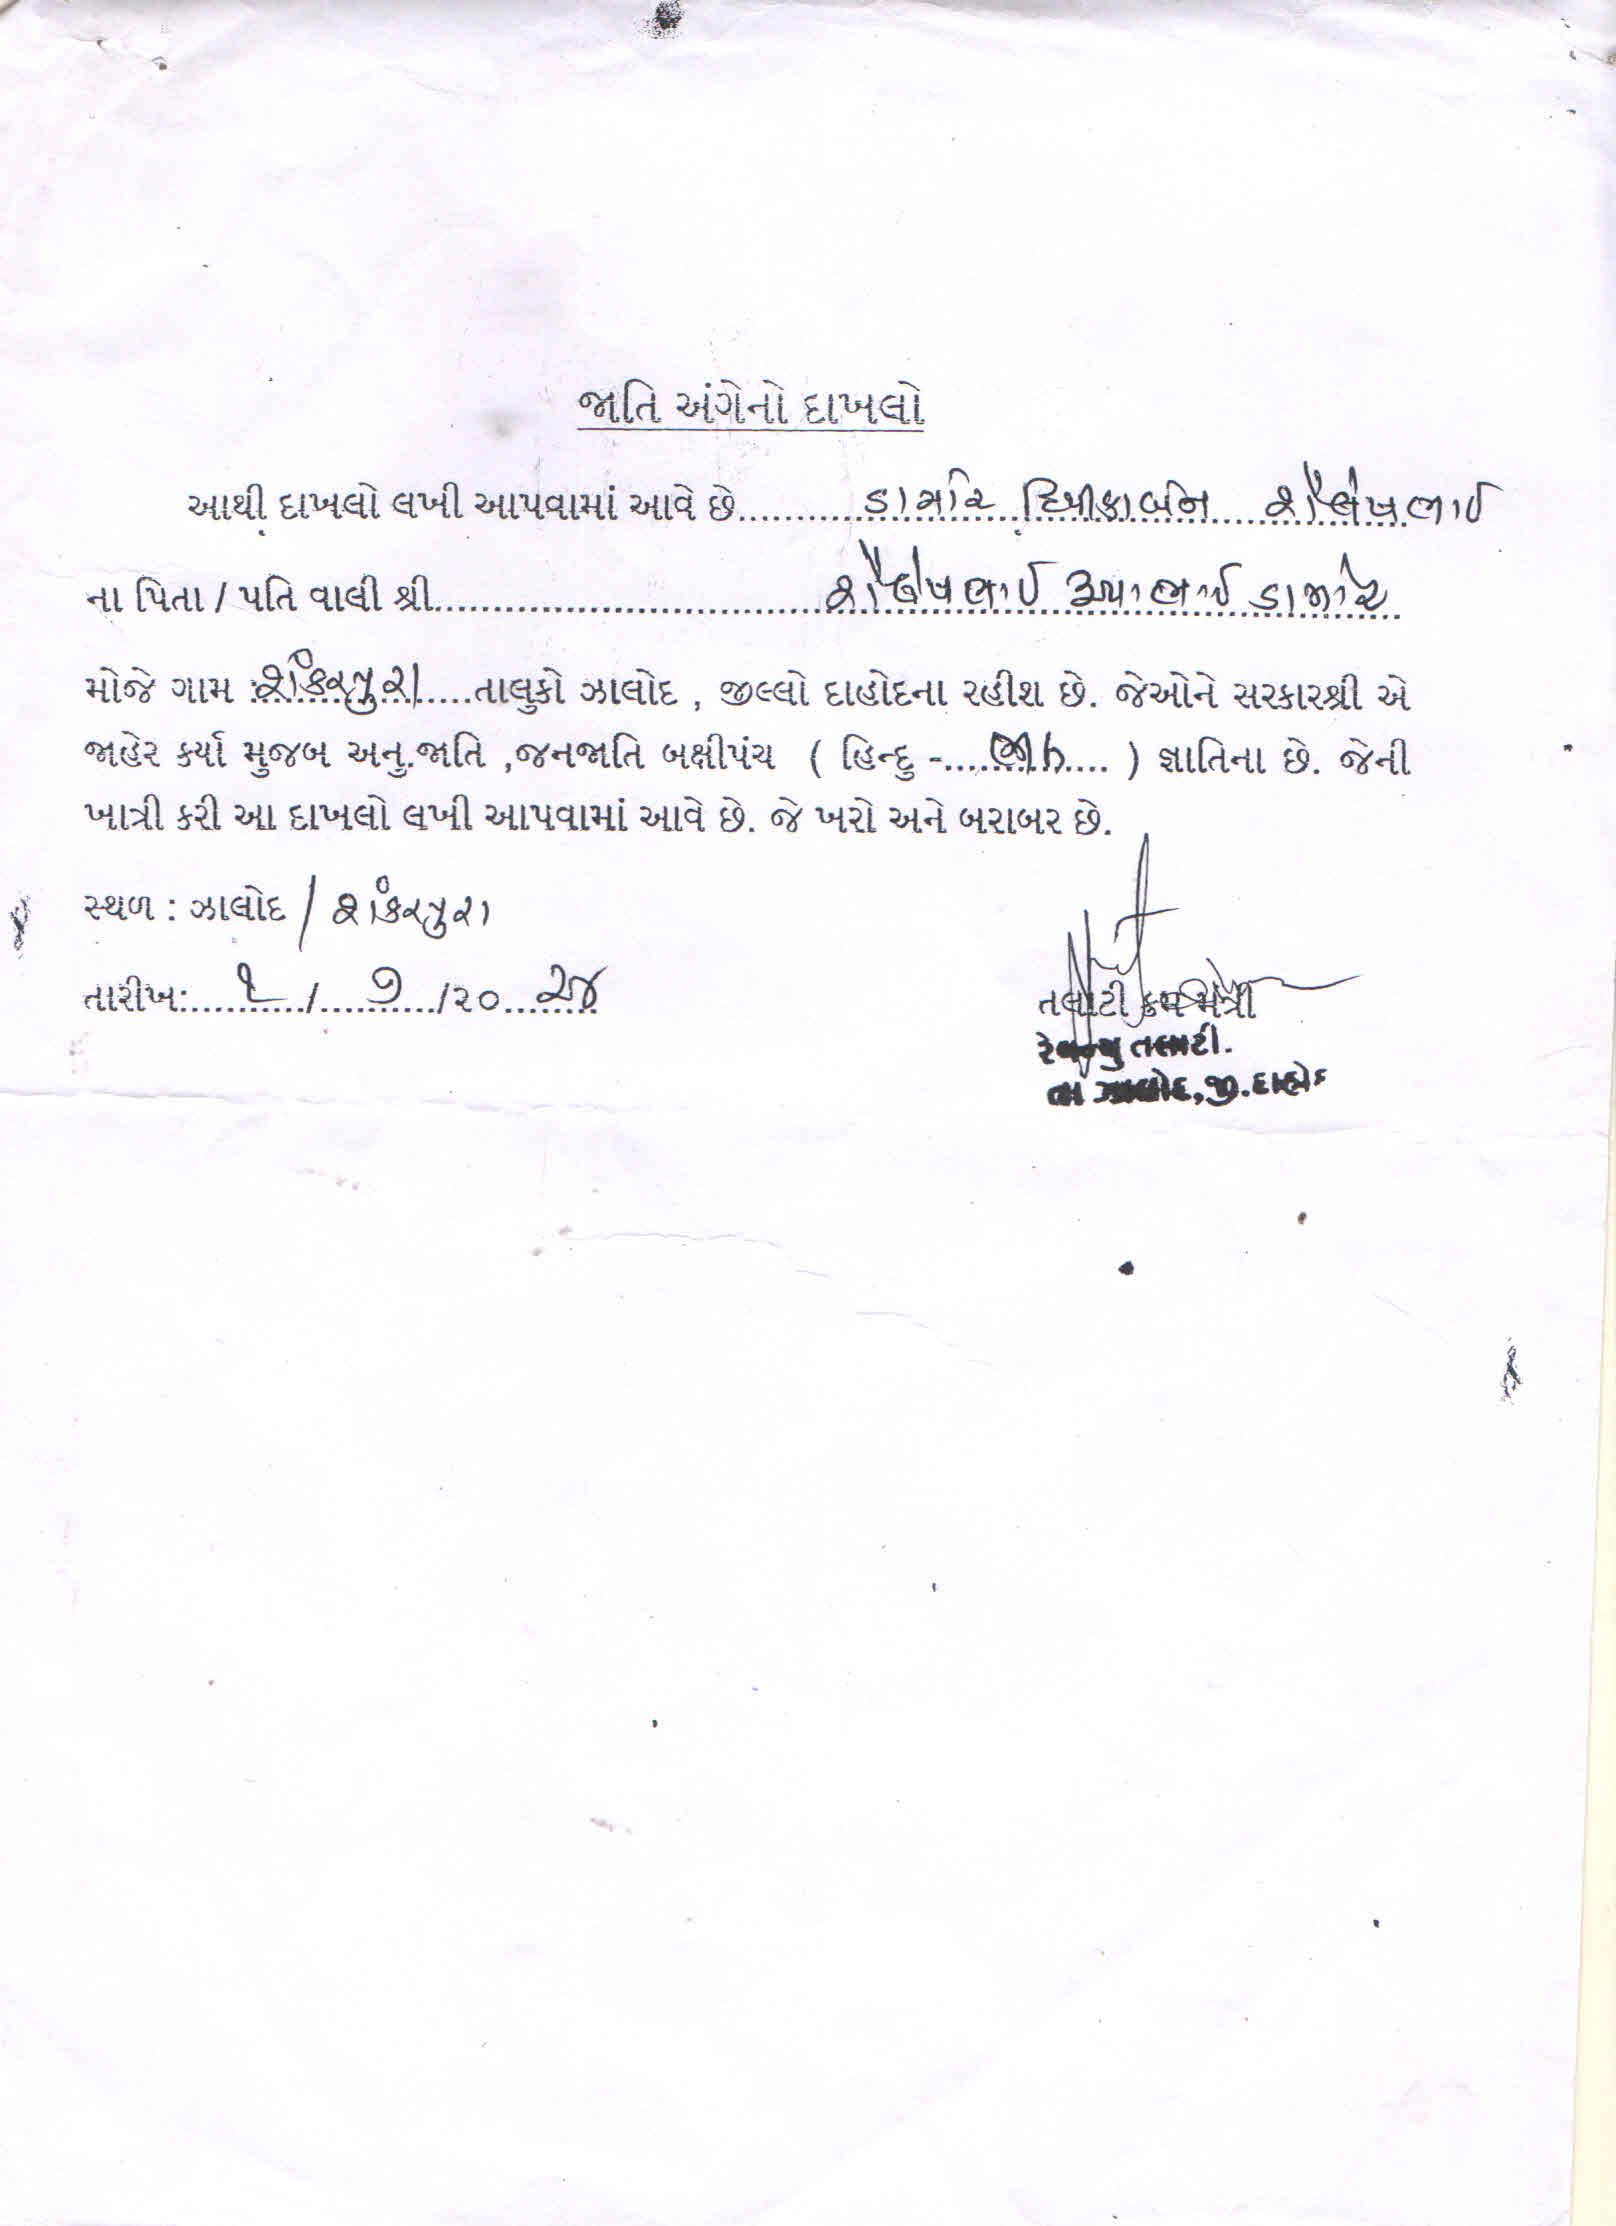 જાતિ અંગેનો દાખલો
આથી દાખલો લખી આપવામાં આવે છે.........ડામોર દિપીકાબેન શૈલેષભાઈ
ના પિતા / પતિ વાલી શ્રી..............................શૈલેષભાઈ રૂપાભાઈ ડામોર
મોજે ગામ :શંકરપુરા....તાલુકો ઝાલોદ , જીલ્લો દાહોદના રહીશ છે. જેઓને સરકારશ્રી એ
જાહેર કર્યા મુજબ અનુ.જાતિ ,જનજાતિ બક્ષીપંચ ( હિન્દુ -....ભીલ.... ) જ્ઞાતિના છે. જેની
ખાત્રી કરી આ દાખલો લખી આપવામાં આવે છે. જે ખરો અને બરાબર છે.
સ્થળ : ઝાલોદ / શંકરપુરા
તારીખ:....૧..../....૭..../૨૦..૨૪
તલાટી કમ મંત્રી
રેવન્યુ તલાટી.
તા ઝાલોદ,જી.દાહોદ